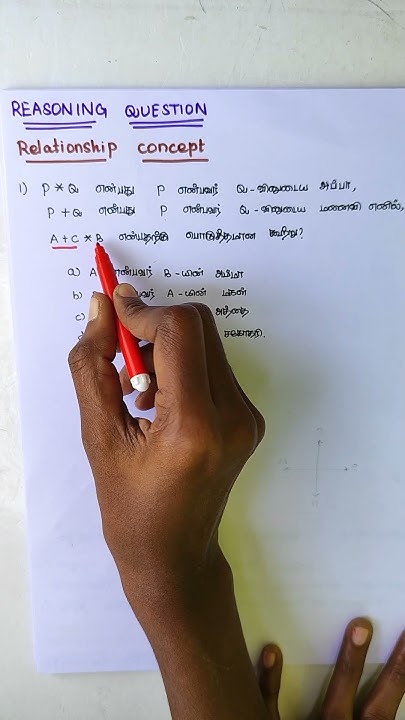 REASONING QUESTION
Relationship concept
1) P * Q என்பது P என்பவர் Q-வினுடைய அப்பா,
P + Q என்பது P என்பவர் Q-வினுடைய மனைவி எனில்,
A + C * B என்பதற்கு பொருத்தமான கூற்று?
a) A என்பவர் B-யின் அம்மா
b) A-யின் மகள்
c) அத்தை
சகோதரி.